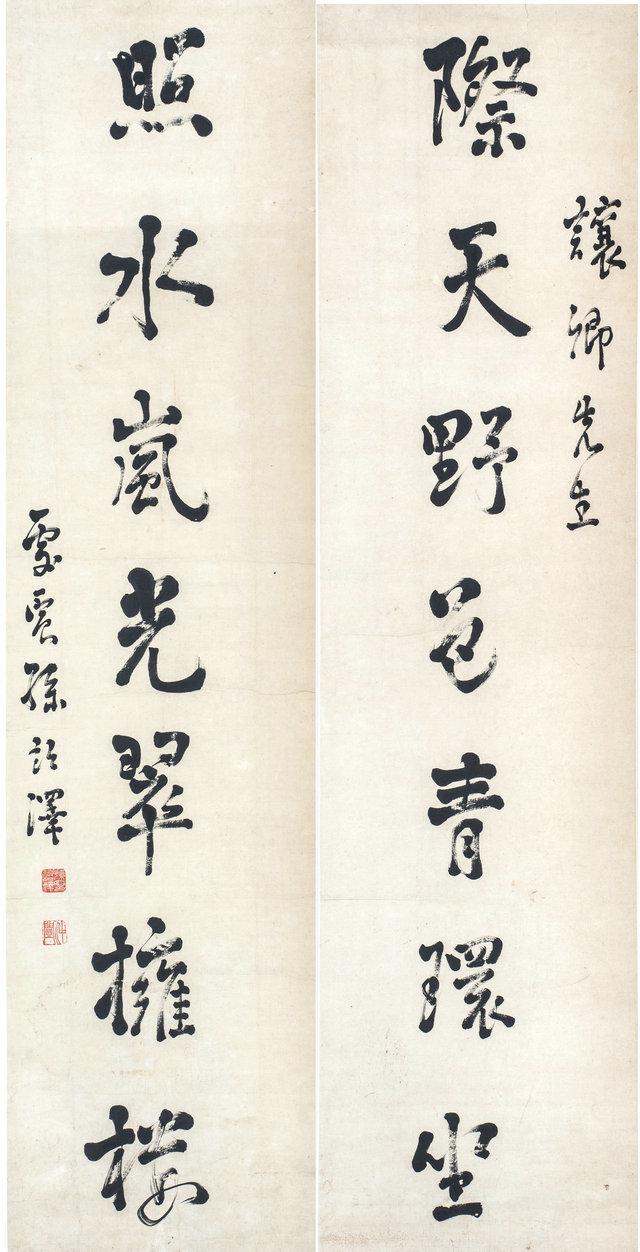 讓卿先生
際天野色青環坐
照水嵐光翠擁樓
孫詒澤